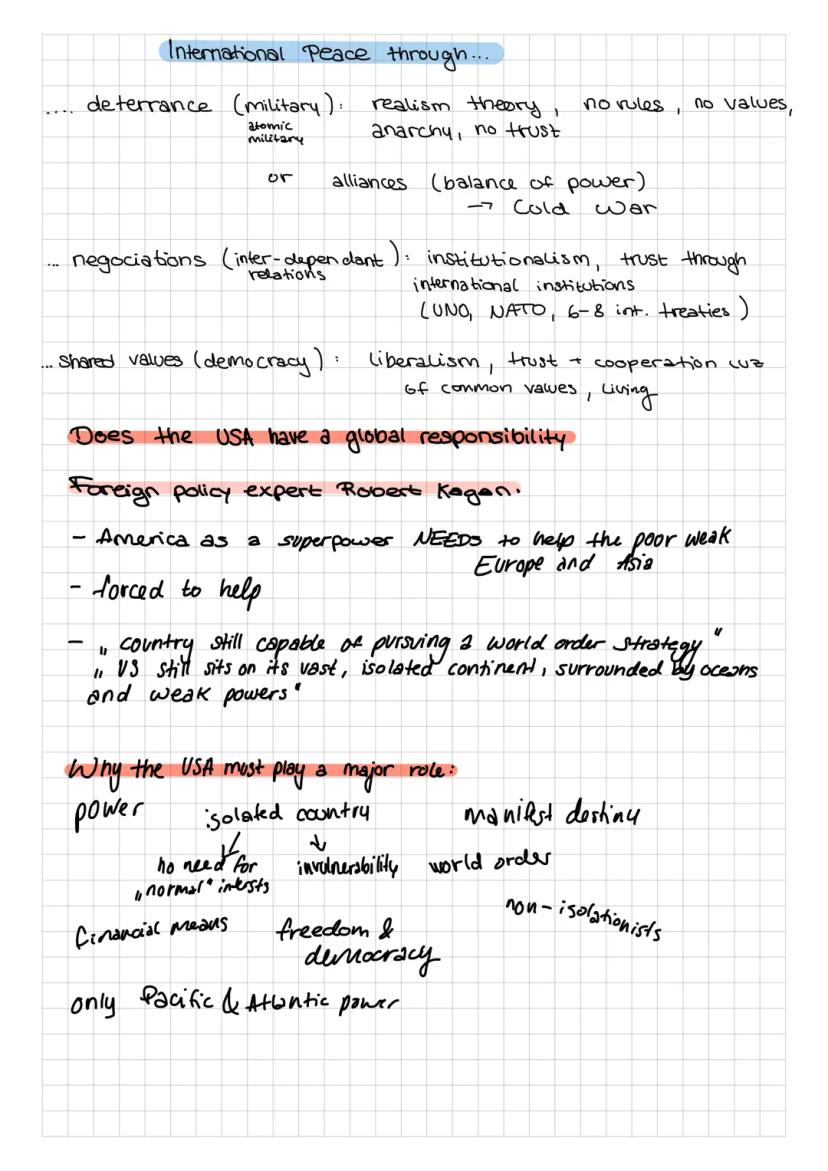 International Peace through...
.... deterrance (military): realism theory, no rules, no values,
atomic military anarchy, no trust
or alliances (balance of power)
→ Cold War
... negociations (inter-dependant relations): institutionalism, trust through
international institutions
(UNO, NATO, 6-8 int. treaties)
... shared values (democracy): liberalism, trust + cooperation cuz
of common values, living
Does the USA have a global responsibility
Foreign policy expert Robert Kagan.
- America as a superpower NEEDs to help the poor weak
Europe and Asia
- forced to help
- „country still capable of pursuing a world order strategy"
„US still sits on its vast, isolated continent, surrounded by oceans
and weak powers"
Why the USA must play a major role:
power isolated country manifest destiny
↓ ↓
no need for invulnerability world order
„normal" intersts
non-isolationists
financial means freedom &
democracy
only Pacific & Atlantic power